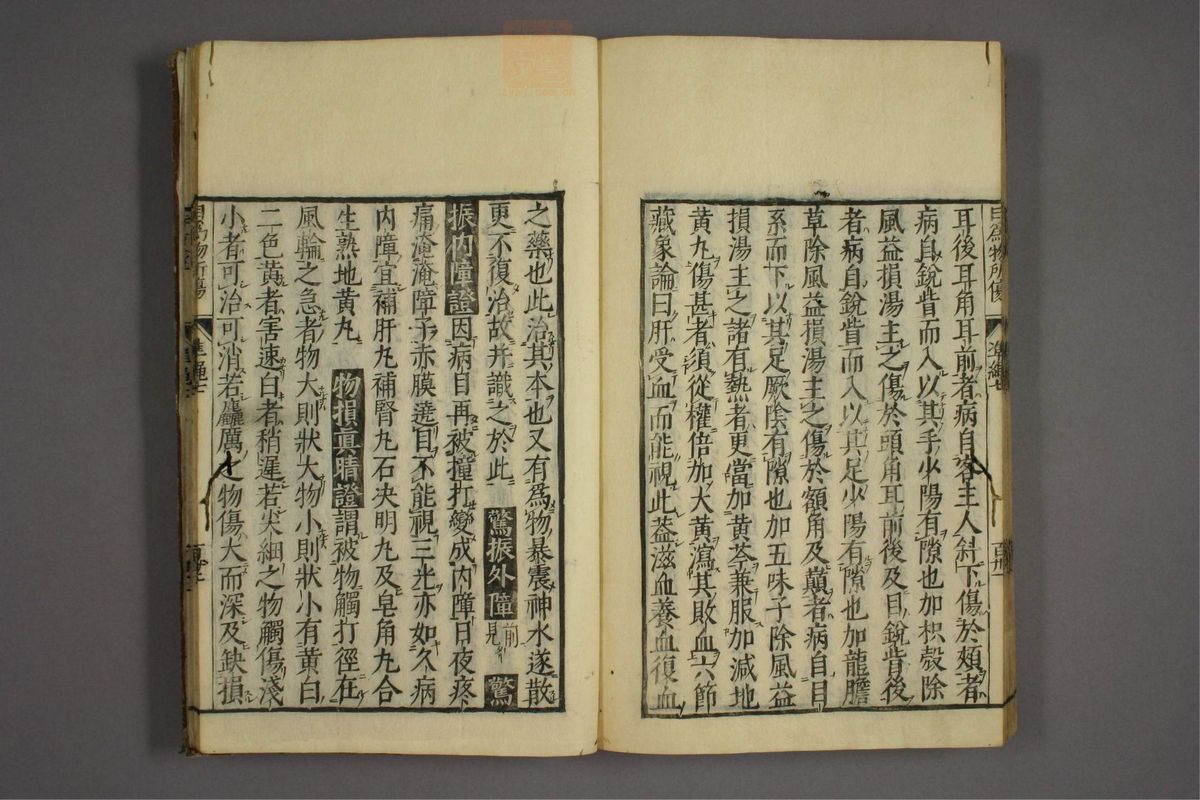 耳後耳角耳前者病自客主人斜下傷於頰者
病自銳眥而入以其手少陽有隙也加枳殼除
風益損湯主之傷於頭角耳前後及目銳眥後
者病自銳眥而入以其足少陽有隙也加龍膽
草除風益損湯主之傷於額角及巔者病自目
系而下以其足厥陰有隙也加五味子除風益
損湯主之諸有熱者更當加黄芩兼服加減地
黄丸傷甚者須從權倍加大黄瀉其敗血六節
藏象論曰肝受血而能視此葢滋血養血復血
之藥也此治其本也又有為物暴震神水遂散
更不復治故并識之於此 驚振外障 前見 驚
振内障證因病目再被撞打變成内障日夜疼
痛淹淹障子赤膜遶目不能視三光亦如久病
内障宜補肝丸補腎丸石决明丸及皂角丸合
生熟地黄丸 物損真睛證謂被物觸打徑在
風輪之急者物大則狀大物小則狀小有黄白
二色黄者害速白者稍遲若尖細之物觸傷淺
小者可治可消若麤厲之物傷大而深及缺損
目為物所傷
準繩七